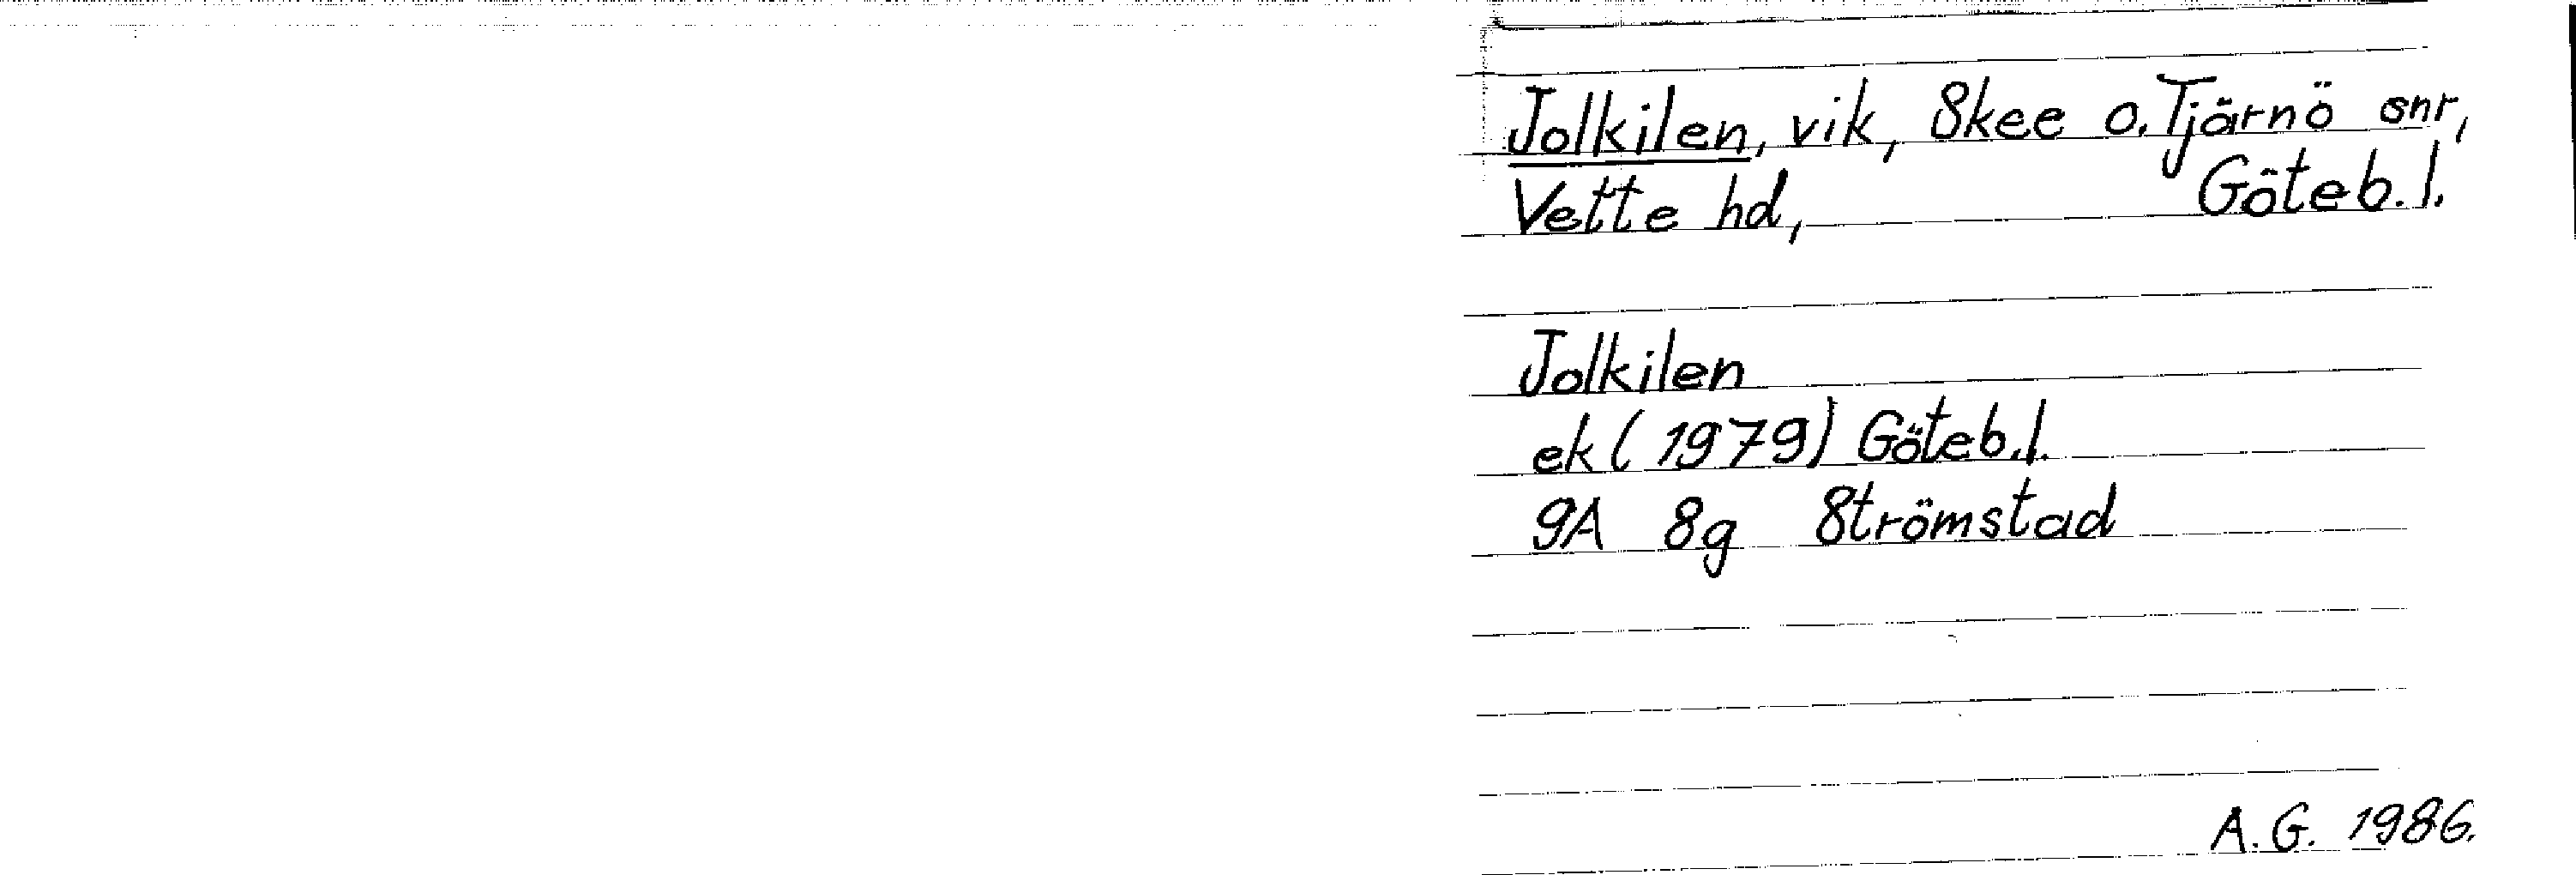 Jolkilen, vik, Skee o. Tjärnö snr,
Vette hd, Göteb. l.
Jolkilen
ek (1979) Göteb. l.
9A 8g Strömstad
A. G. 1986.